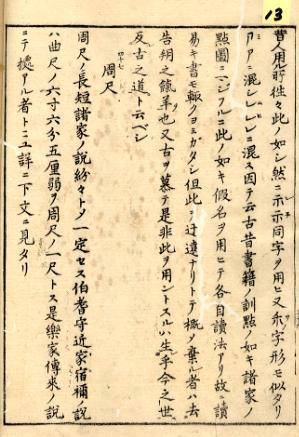 13
昔人用ル所往々此ノ如シ然ニ示示同字ヲ用ヒ又ホ字形モ似タリ
アアニ混シレレニ混ス因テ云古昔書籍ノ訓點ノ如キ諸家ノ
點圖ニマジフルニ此ノ如キ假名ヲ用ヒテ各自讀法アリ故ニ讀
易キ書モ輙クヨミガタシ但此ニ汙違ナリトテ概ノ棄ル者ハ去
告朔之餼羊也又古ヲ慕テ是非此ヲ用ントスルハ生乎今之世
反古之道ト云ベシ
四十七
周尺
周尺ノ長短諸家ノ説紛々トノ一定セス伯耆守近家宿禰説
ハ曲尺ノ六寸六分五厘弱ヲ周尺ノ一尺トス是樂家傳來ノ説
ニテ據アル者トミユ詳ニ下文ニ見タリ